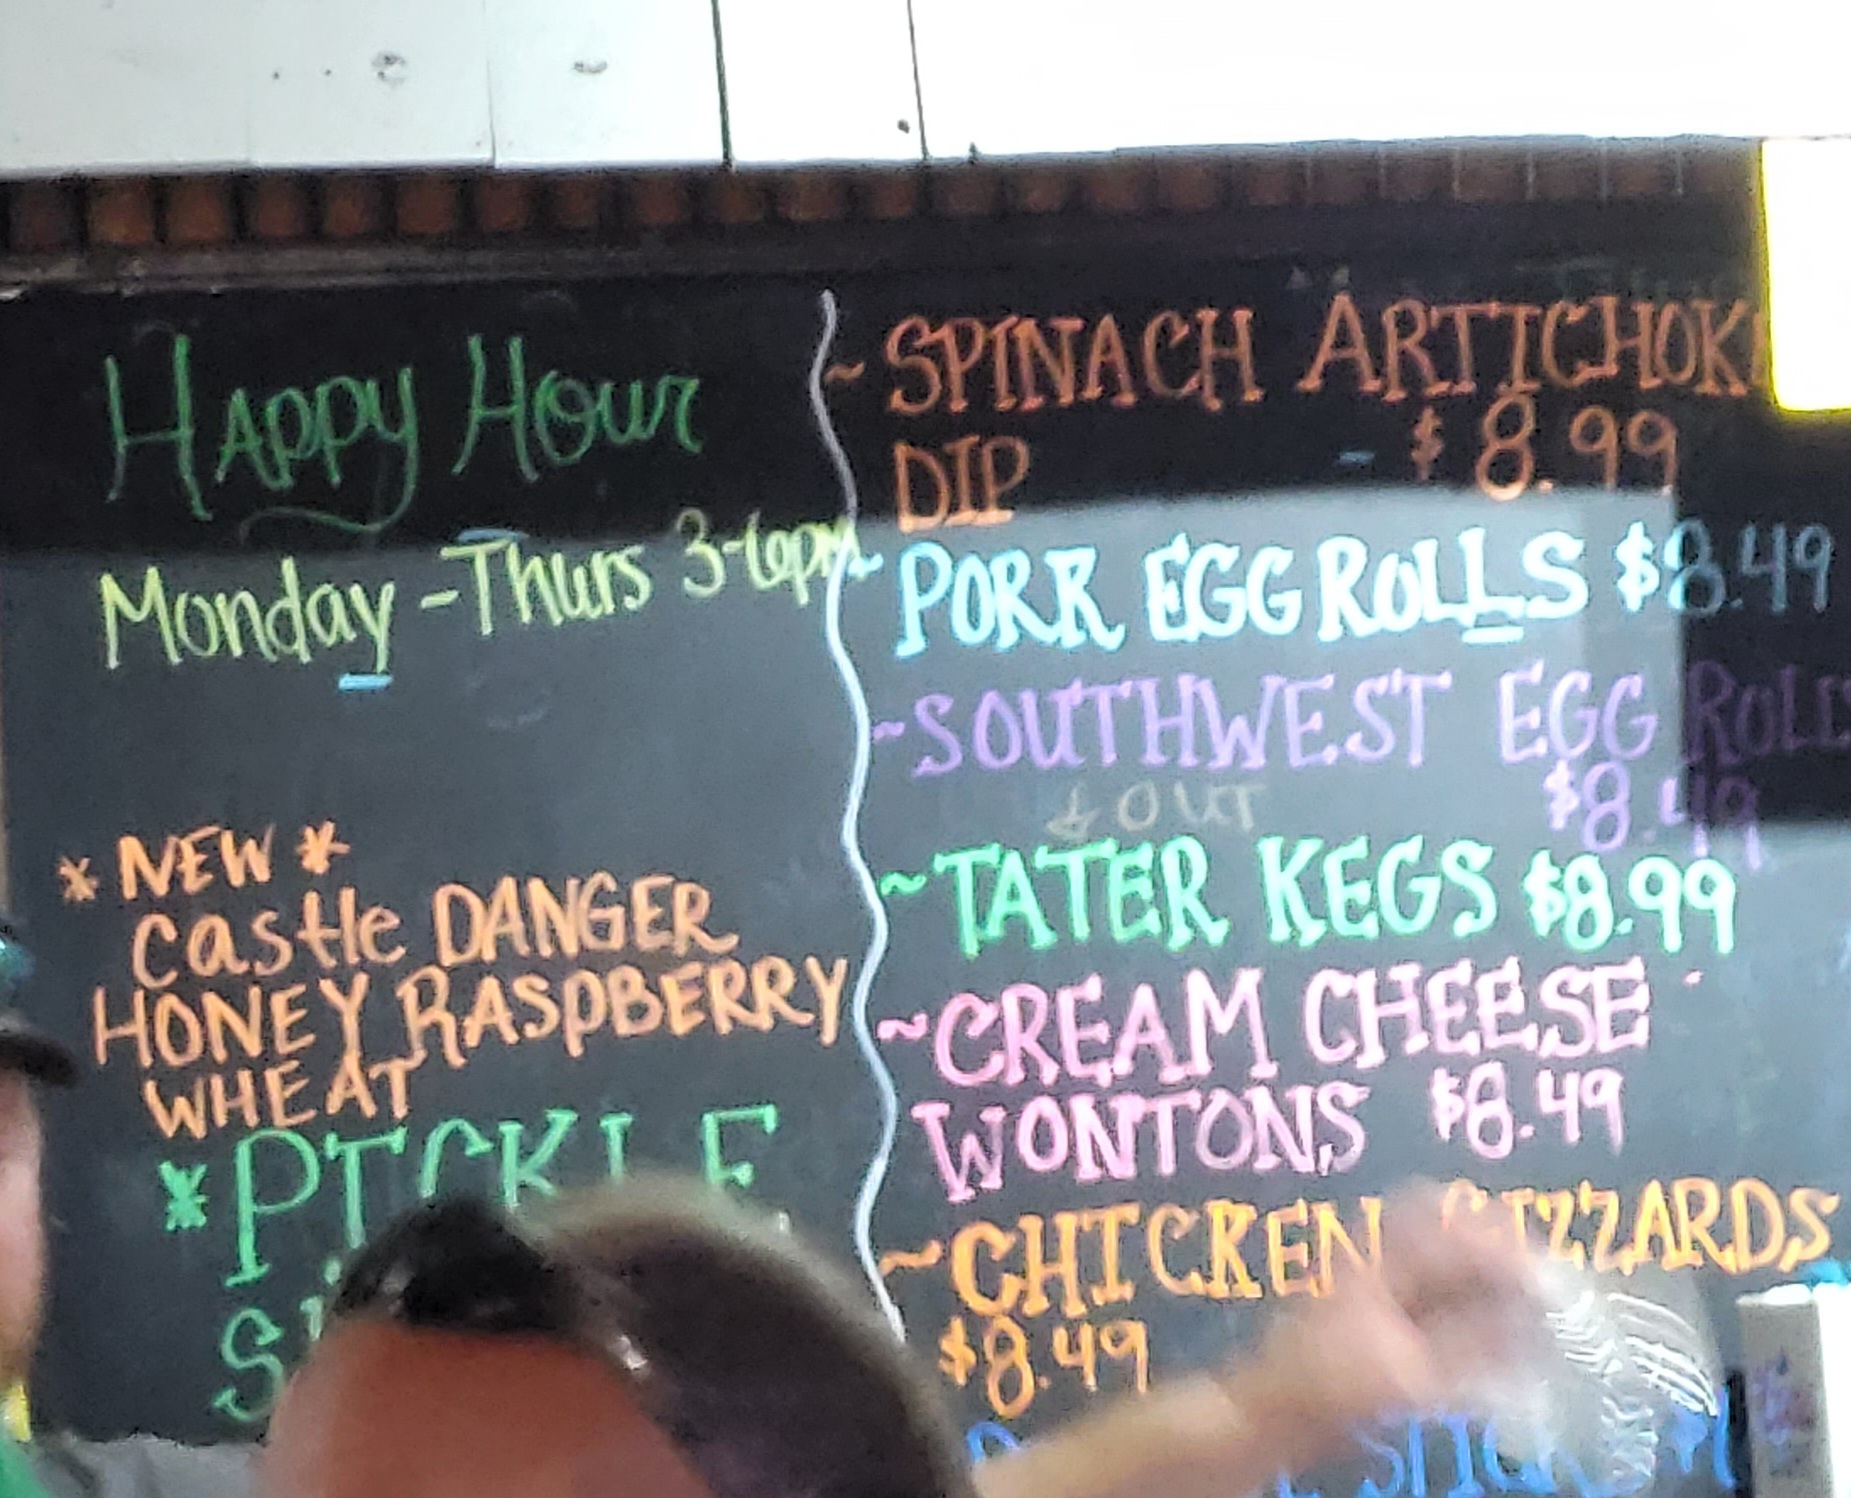 Happy Hour
Monday - Thurs 3-6pm
* NEW *
Castle DANGER
HONEY RASPBERRY
WHEAT
* PICKLE
~ SPINACH ARTICHOK
DIP - $8.99
~ PORK EGG ROLLS $8.49
~ SOUTHWEST EGG ROLLS
OUT $8.49
~ TATER KEGS $8.99
~ CREAM CHEESE
WONTONS $8.49
~ CHICKEN GIZZARDS
$8.49